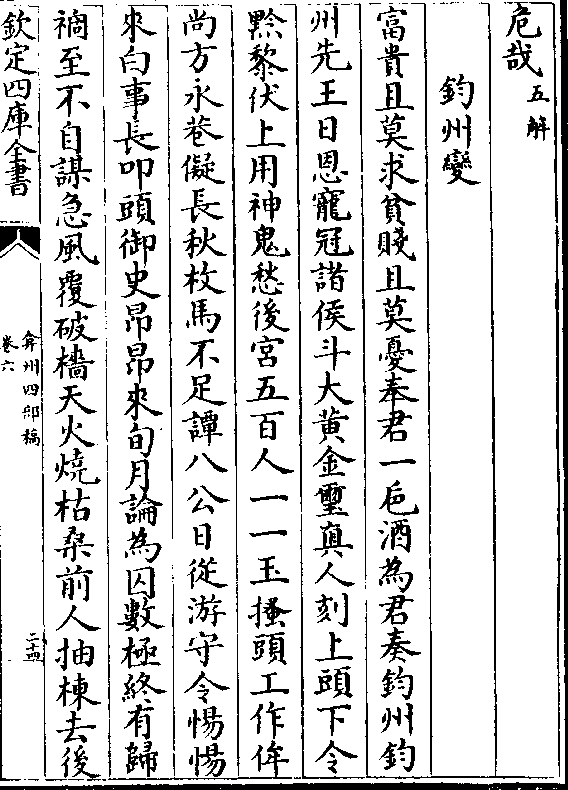 危哉五解
鈞州變
富貴且莫求貧賤且莫憂奉君一巵酒為君奏鈞州鈞
州先王日恩寵冠諸侯斗大黄金璽真人刻上頭下令
黔黎伏上用神鬼愁後宮五百人一一玉搔頭工作侔
尚方永巷儗長秋枚馬不足譚八公日從游守令惕惕
來白事長叩頭御史昂昂來旬月論為囚數極終有歸
禍至不自謀急風覆破檣天火燒枯桑前人抽棟去後
欽定四庫全書
弇州四部稿
卷六
二十四